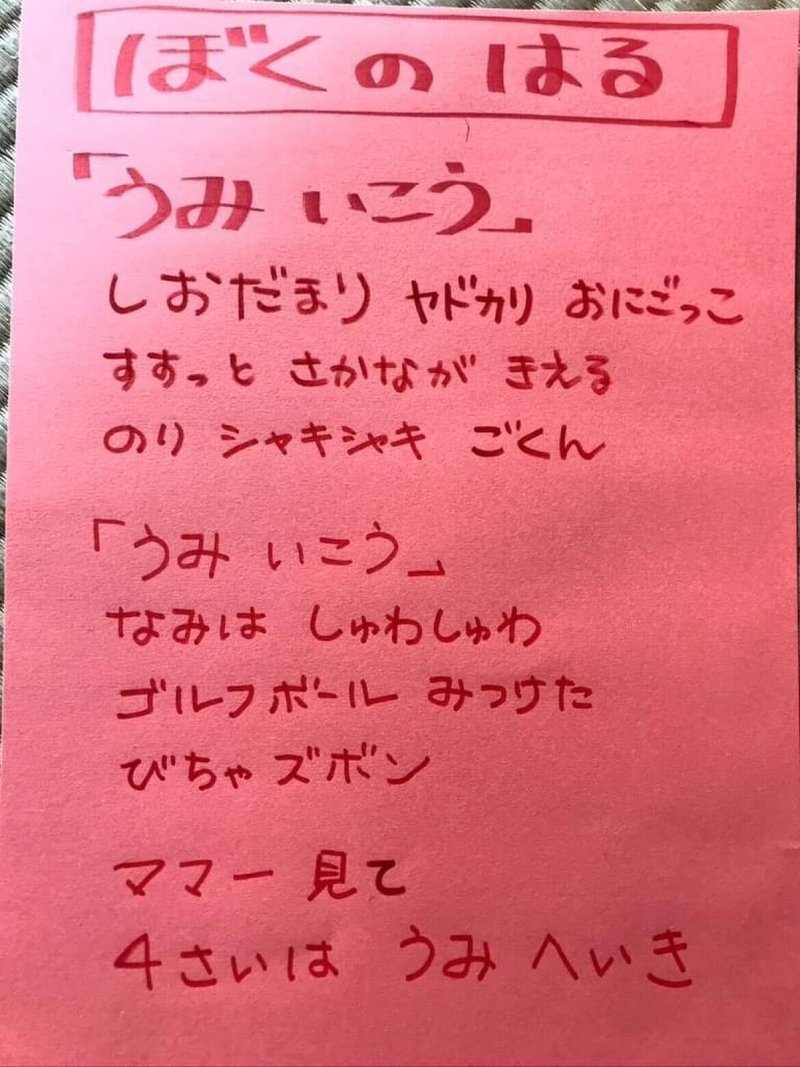 ぼくの はる
「うみ いこう」
しおだまり ヤドカリ おにごっこ
すすっと さかなが きえる
のり シャキシャキ ごくん
「うみ いこう」
なみは しゅわしゅわ
ゴルフボール みつけた
びちゃ ズボン
ママー 見て
4さいは うみ へいき